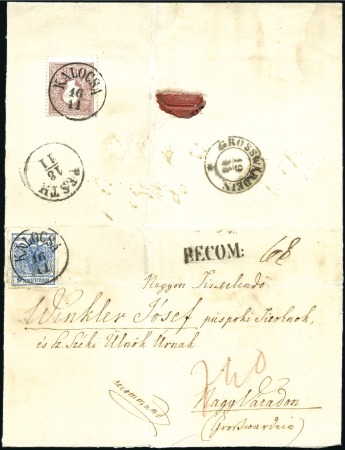 KALOCSA
16
11
PESTH
13
11
GROSSWARDEIN
19
11
KALOCSA
16
11
9 KREUZER
RECOM:
Nagyon Tisztelendő
Winkler József püspöki Titolnok,
és Sz. Széki Ülnök Úrnak
Nagy Váradon
(Grosswardein)